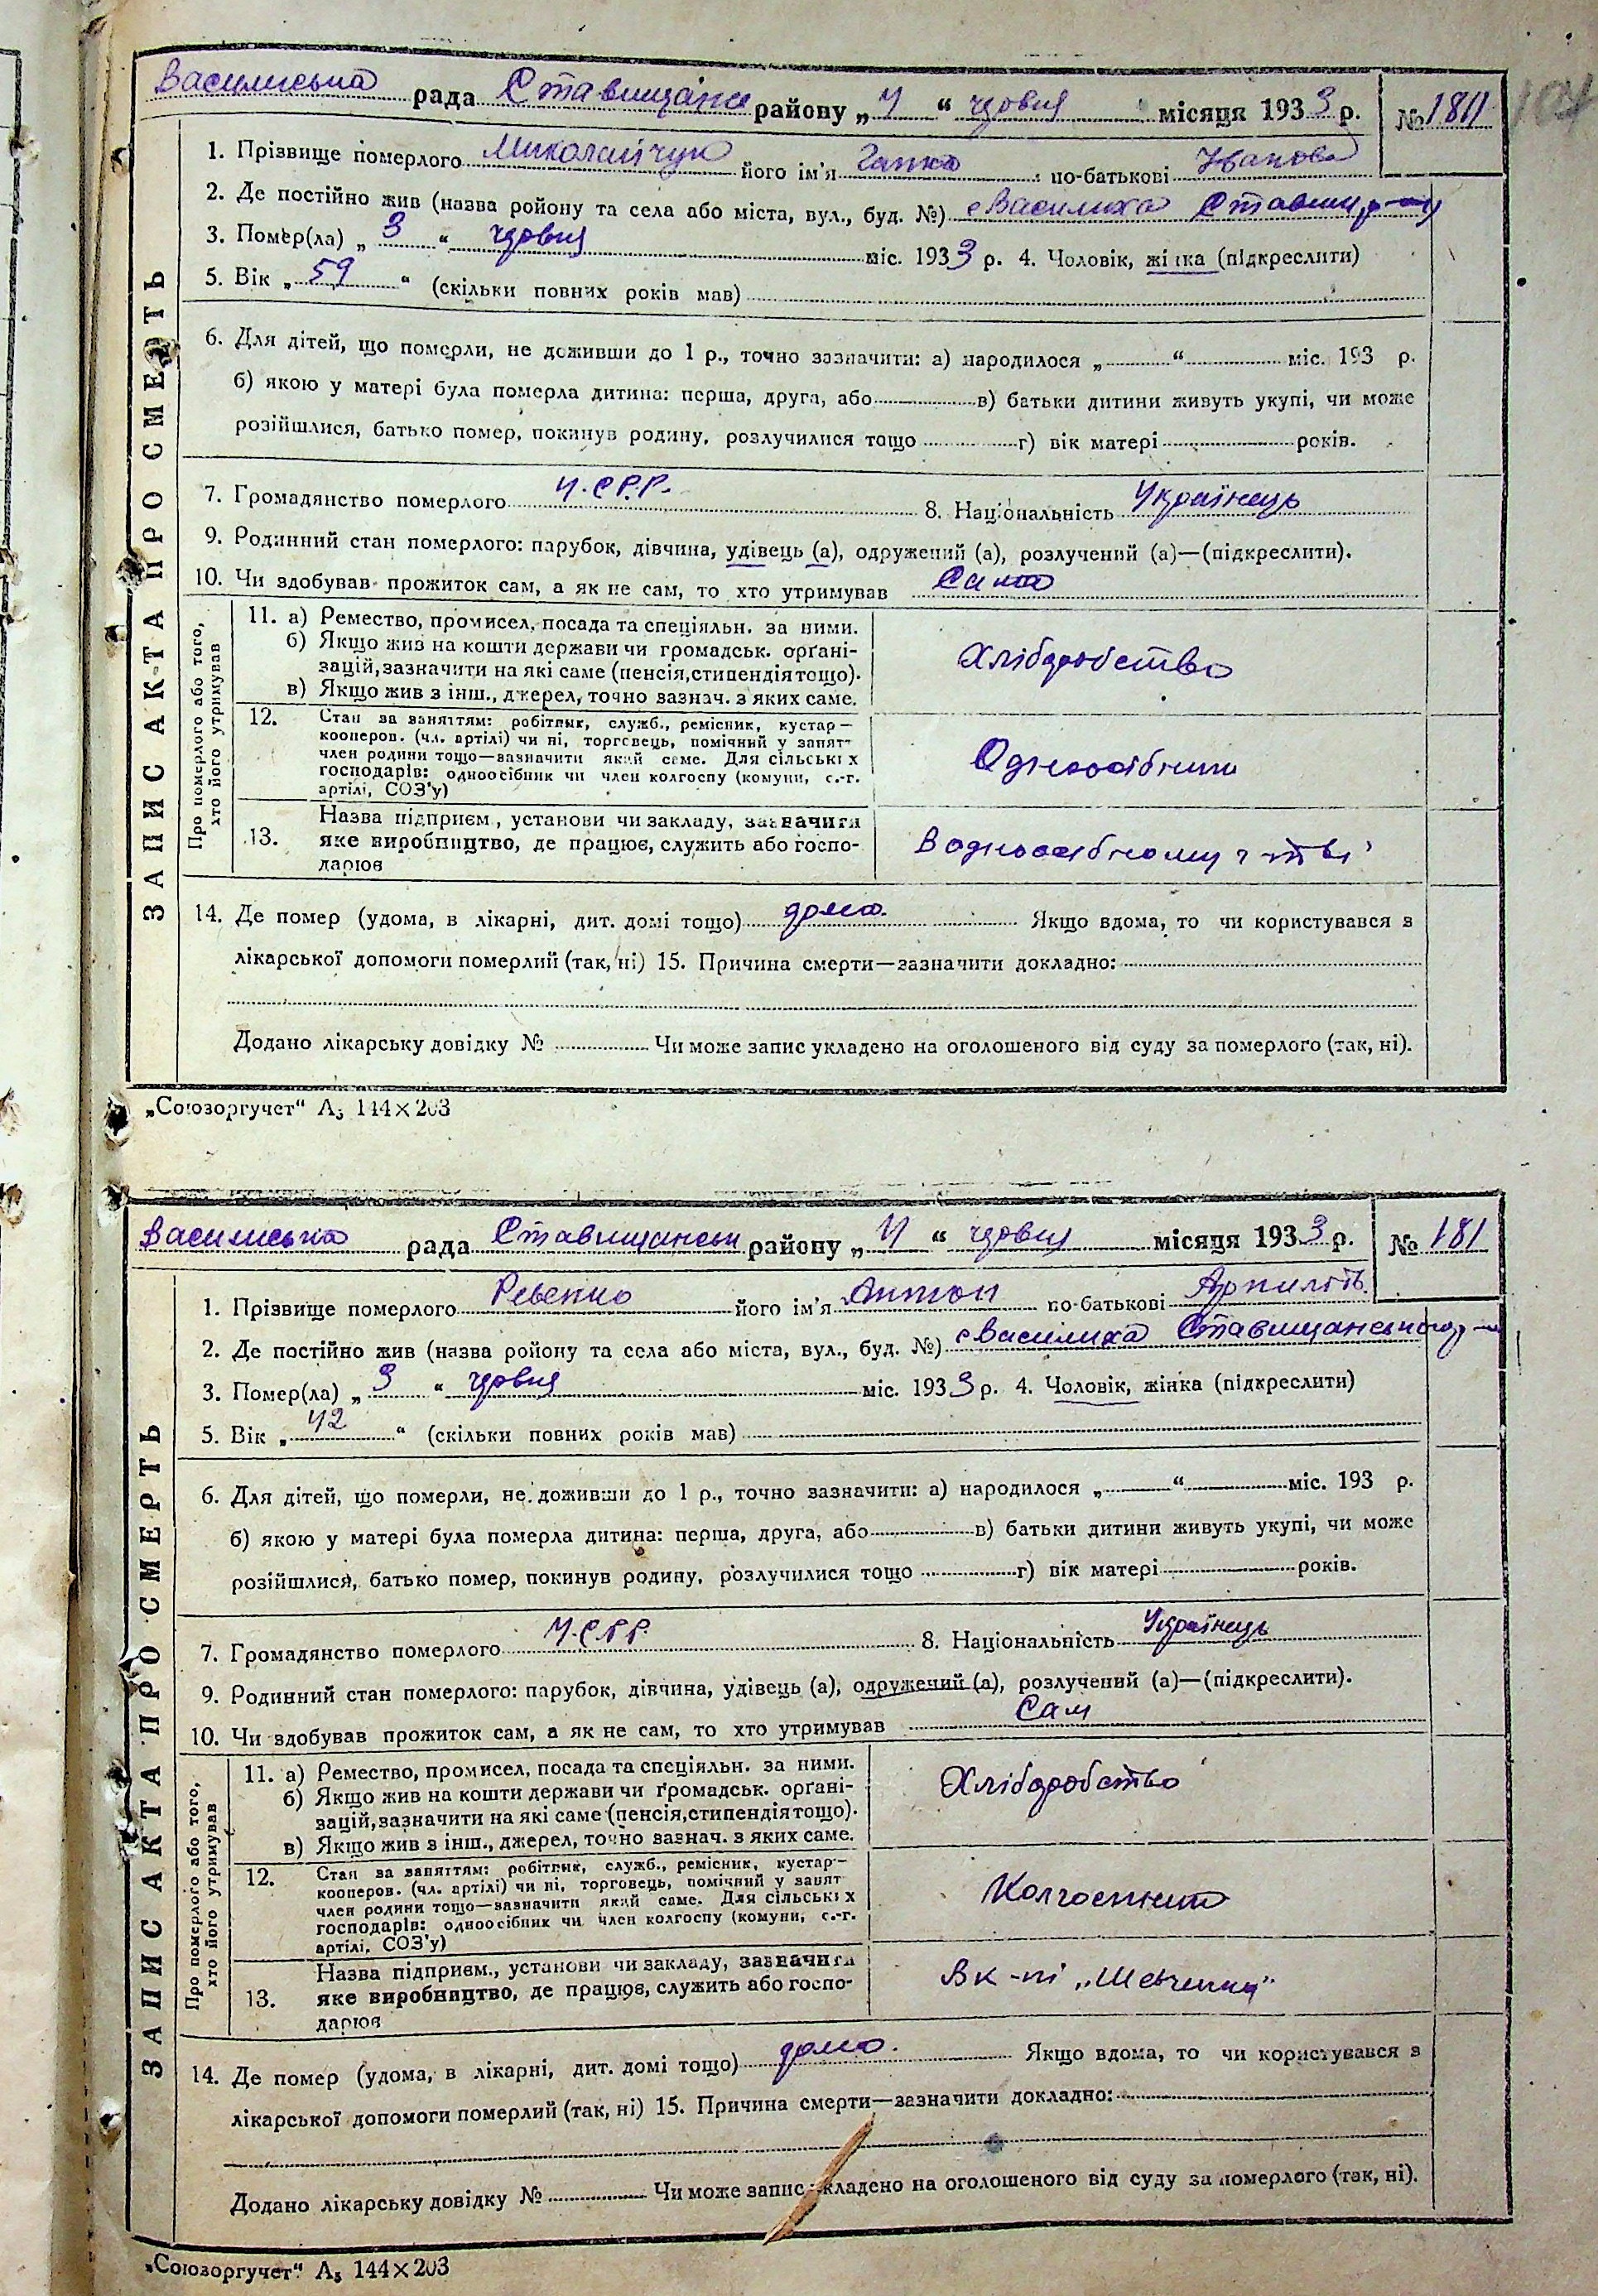 Василиська рада Ставищанс району „4“ червня місяця 1933 р. № 180
1. Прізвище померлого Миколайчук його ім'я Гапка по-батькові Іванова
2. Де постійно жив (назва ройону та села або міста, вул., буд. №) с Василиха Ставищ р-ну
3. Помер(ла) „3“ червня міс. 1933 р. 4. Чоловік, жінка (підкреслити)
5. Вік „59“ (скільки повних років мав)
6. Для дітей, що померли, не доживши до 1 р., точно зазначити: а) народилося „ “ міс. 193 р.
б) якою у матері була померла дитина: перша, друга, або в) батьки дитини живуть укупі, чи може
розійшлися, батько помер, покинув родину, розлучилися тощо г) вік матері років.
7. Громадянство померлого У.С.Р.Р. 8. Національність Українець
9. Родинний стан померлого: парубок, дівчина, удівець (а), одружений (а), розлучений (а)—(підкреслити).
10. Чи здобував прожиток сам, а як не сам, то хто утримував Сама
ЗАПИС АКТА ПРО СМЕРТЬ
Про померлого або того, хто його утримував
11. а) Ремество, промисел, посада та спеціяльн. за ними.
б) Якщо жив на кошти держави чи громадськ. орґані-
зацій, зазначити на які саме (пенсія, стипендія тощо).
в) Якщо жив з інш., джерел, точно зазнач. з яких саме.
Хліборобство
12. Стан за заняттям: робітник, служб., ремісник, кустар—
кооперов. (чл. артілі) чи ні, торговець, помічний у занят
член родини тощо—зазначити який саме. Для сільських
господарів: одноосібник чи член колгоспу (комуни, с.-г.
артілі, СОЗ'у)
Одноосібник
13. Назва підприєм., установи чи закладу, зазначити
яке виробництво, де працює, служить або госпо-
дарює
В одноосібному г-тві
14. Де помер (удома, в лікарні, дит. домі тощо) дома. Якщо вдома, то чи користувався з
лікарської допомоги померлий (так, ні) 15. Причина смерти—зазначити докладно:
Додано лікарську довідку № Чи може запис укладено на оголошеного від суду за померлого (так, ні).
„Союзоргучет“ А₅ 144×203
Василиська рада Ставищанськ району „4“ червня місяця 1933 р. № 181
1. Прізвище померлого Ревенко його ім'я Антон по-батькові
2. Де постійно жив (назва ройону та села або міста, вул., буд. №) с Василиха Ставищанського р-ну
3. Помер(ла) „3“ червня міс. 1933 р. 4. Чоловік, жінка (підкреслити)
5. Вік „42“ (скільки повних років мав)
6. Для дітей, що померли, не доживши до 1 р., точно зазначити: а) народилося „ “ міс. 193 р.
б) якою у матері була померла дитина: перша, друга, або в) батьки дитини живуть укупі, чи може
розійшлися, батько помер, покинув родину, розлучилися тощо г) вік матері років.
7. Громадянство померлого У.С.Р.Р. 8. Національність Українець
9. Родинний стан померлого: парубок, дівчина, удівець (а), одружений (а), розлучений (а)—(підкреслити).
10. Чи здобував прожиток сам, а як не сам, то хто утримував Сам
ЗАПИС АКТА ПРО СМЕРТЬ
Про померлого або того, хто його утримував
11. а) Ремество, промисел, посада та спеціяльн. за ними.
б) Якщо жив на кошти держави чи ґромадськ. орґані-
зацій, зазначити на які саме (пенсія, стипендія тощо).
в) Якщо жив з інш., джерел, точно зазнач. з яких саме.
Хліборобство
12. Стан за заняттям: робітник, служб., ремісник, кустар—
кооперов. (чл. артілі) чи ні, торговець, помічний у занят
член родини тощо—зазначити який саме. Для сільських
господарів: одноосібник чи член колгоспу (комуни, с.-г.
артілі, СОЗ'у)
Колгоспник
13. Назва підприєм., установи чи закладу, зазначити
яке виробництво, де працює, служить або госпо-
дарює
В к-пі „Шевченка“
14. Де помер (удома, в лікарні, дит. домі тощо) дома. Якщо вдома, то чи користувався з
лікарської допомоги померлий (так, ні) 15. Причина смерти—зазначити докладно:
Додано лікарську довідку № Чи може запис укладено на оголошеного від суду за померлого (так, ні).
„Союзоргучет“ А₅ 144×203